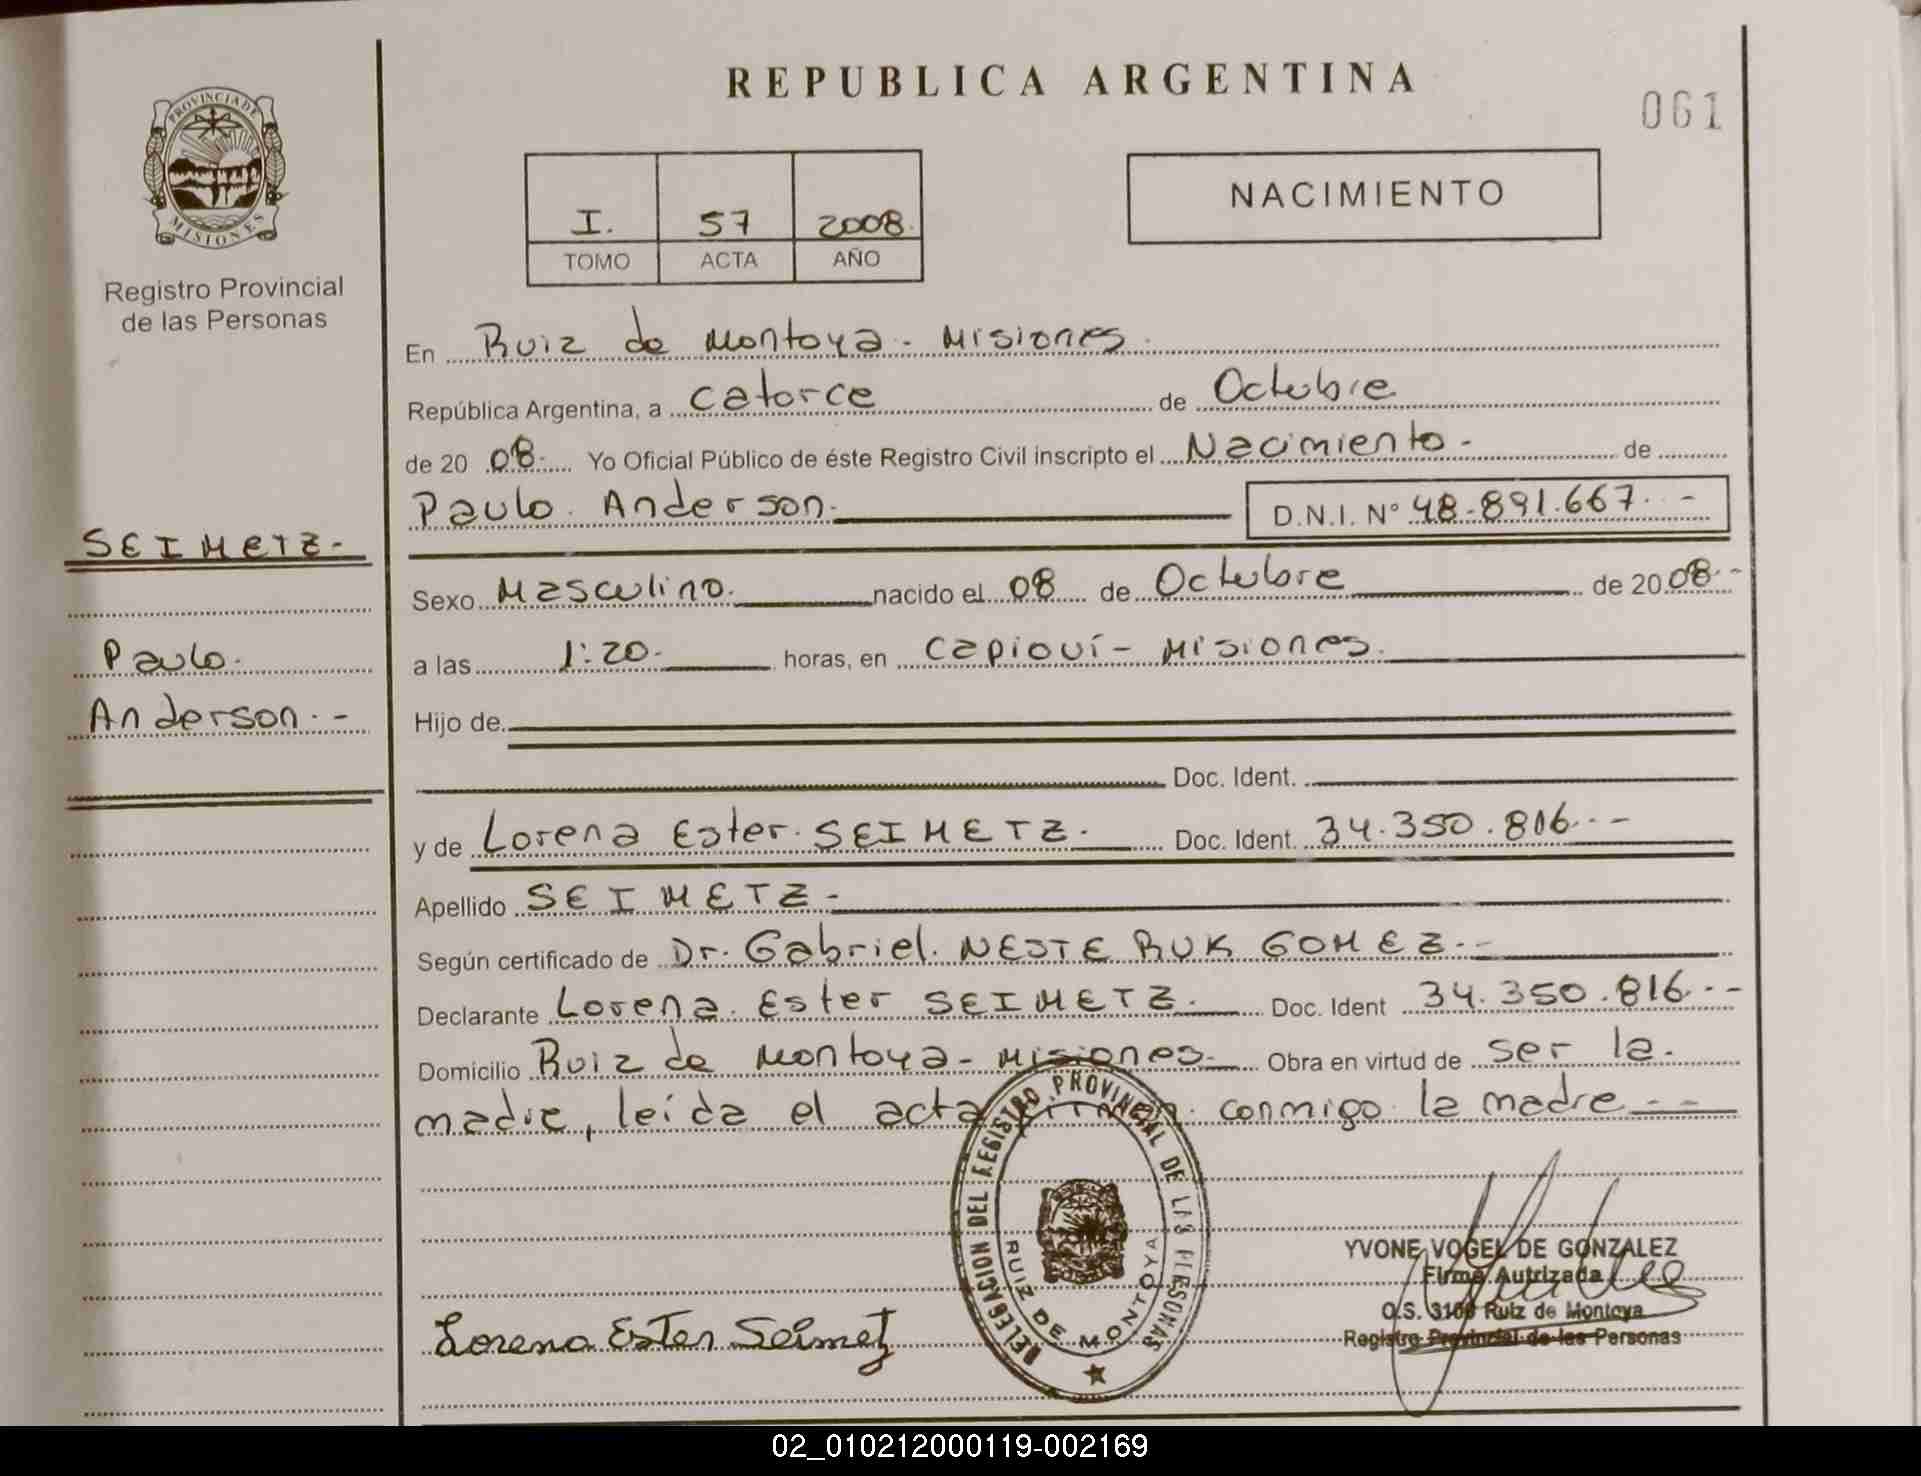 REPUBLICA ARGENTINA
061
PROVINCIA DE
MISIONES
Registro Provincial
de las Personas
I. 57 2008.
TOMO ACTA AÑO
NACIMIENTO
En Ruiz de Montoya - Misiones.
República Argentina, a catorce de Octubre
de 20 08. Yo Oficial Público de éste Registro Civil inscripto el Nacimiento - de
Paulo Anderson. D.N.I. N° 48.891.667. -
SEIMETZ-
Sexo Masculino. nacido el 08 de Octubre de 20 08. -
Paulo.
a las 1:20. horas, en Capioví - Misiones.
Anderson. -
Hijo de
Doc. Ident.
y de Lorena Ester. SEIMETZ. Doc. Ident. 34.350.816. -
Apellido SEIMETZ -
Según certificado de Dr. Gabriel. NESTERUK GOMEZ. -
Declarante Lorena Ester SEIMETZ. Doc. Ident 34.350.816. -
Domicilio Ruiz de Montoya - Misiones. Obra en virtud de ser la
madre, leída el acta firman conmigo la madre - -
DELEGACION DEL REGISTRO PROVINCIAL DE LAS PERSONAS
RUIZ DE MONTOYA
Lorena Ester Seimetz
YVONE VOGEL DE GONZALEZ
Firma Autrizada
O.S. Ruiz de Montoya
Registro Provincial de las Personas
02_010212000119-002169